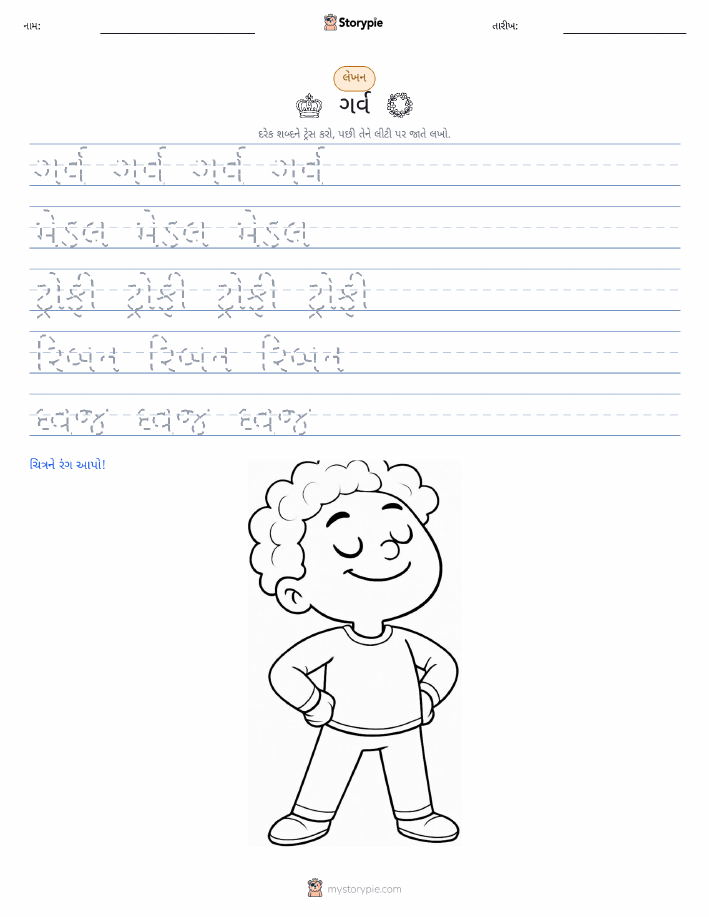 નામ:
Storypie
તારીખ:
લેખન
ગર્વ
દરેક શબ્દને ટ્રેસ કરો, પછી તેને લીટી પર જાતે લખો.
ગર્વ ગર્વ ગર્વ ગર્વ
મેડલ મેડલ મેડલ
ટ્રોફી ટ્રોફી ટ્રોફી ટ્રોફી
રિબન રિબન રિબન
ધ્વજ ધ્વજ ધ્વજ
ચિત્રને રંગ આપો!
mystorypie.com